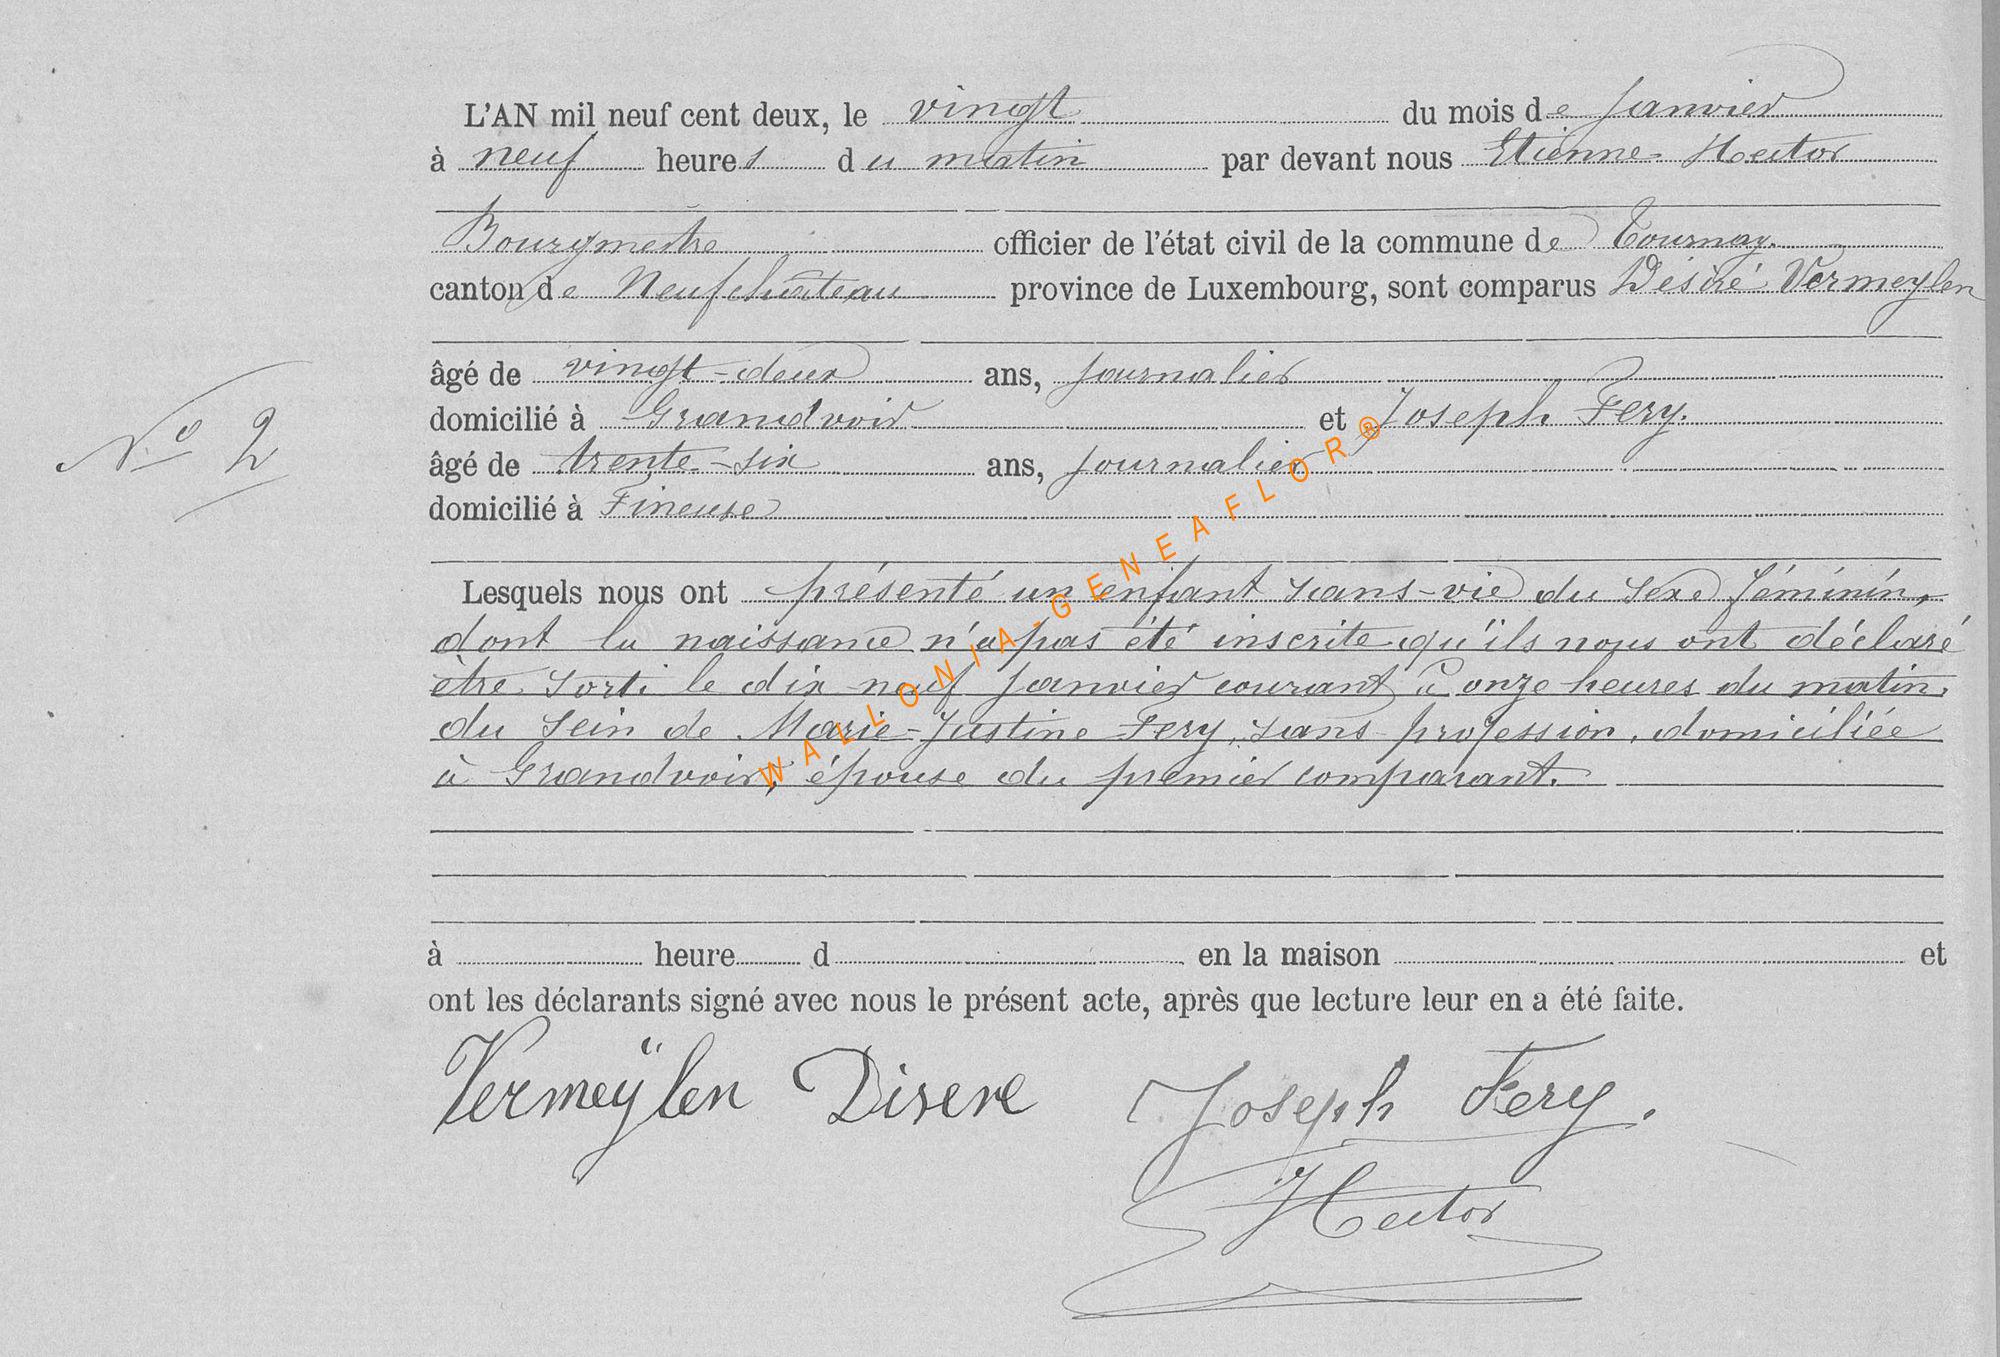 L'AN mil neuf cent deux, le vingt du mois de Janvier
à neuf heures du matin par devant nous Etienne Hector
Bourgmestre officier de l'état civil de la commune de Tournay.
canton de Neufchâteau province de Luxembourg, sont comparus Désiré Vermeylen
âgé de vingt-deux ans, journalier
domicilié à Grandvoir et Joseph Fery.
âgé de trente-six ans, journalier
domicilié à Fineuse
N° 2
Lesquels nous ont présenté un enfant sans-vie du sexe féminin,
dont la naissance n'a pas été inscrite qu'ils nous ont déclaré
être sorti le dix-neuf Janvier courant à onze heures du matin,
du sein de Marie-Justine Fery, sans profession, domiciliée
à Grandvoir, épouse du premier comparant.
à heure d en la maison et
ont les déclarants signé avec nous le présent acte, après que lecture leur en a été faite.
Vermeÿlen Disere Joseph Fery.
Hector
WALLONIA-GENEAFLOR®